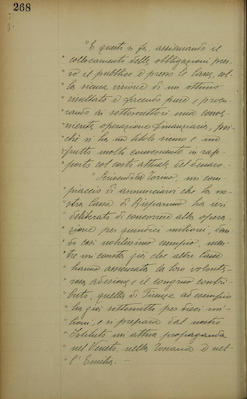 268
E questi si fa, assicurando il
collocamento delle obbligazioni pres-
so il pubblico e presso le Casse, col-
la sicura riuscita di un ottimo
risultato e facendo pure, procu-
rando ai sottoscrittori una
operazione finanziaria, poi-
chè si ha un titolo sicuro
frutti molto convenienti in rap-
porto col costo attuale del denaro.
Torino, mi com-
piaccio di annunciarvi che la no-
stra Cassa di Risparmio ha ieri
deliberato di concorrere alla opera-
zione per quindici milioni, dan-
do così nobilissimo esempio, men-
tre mi consta già che altre Casse
hanno assicurata la loro volente-
rosa adesione e il congruo contri-
buto, quella di Firenze ad esempio
ha già sottoscritto per dieci mi-
lioni, e si prepara dal nostro
Istituto un'attiva propaganda
nel Veneto, nella Toscana e nel-
l'Emilia. —